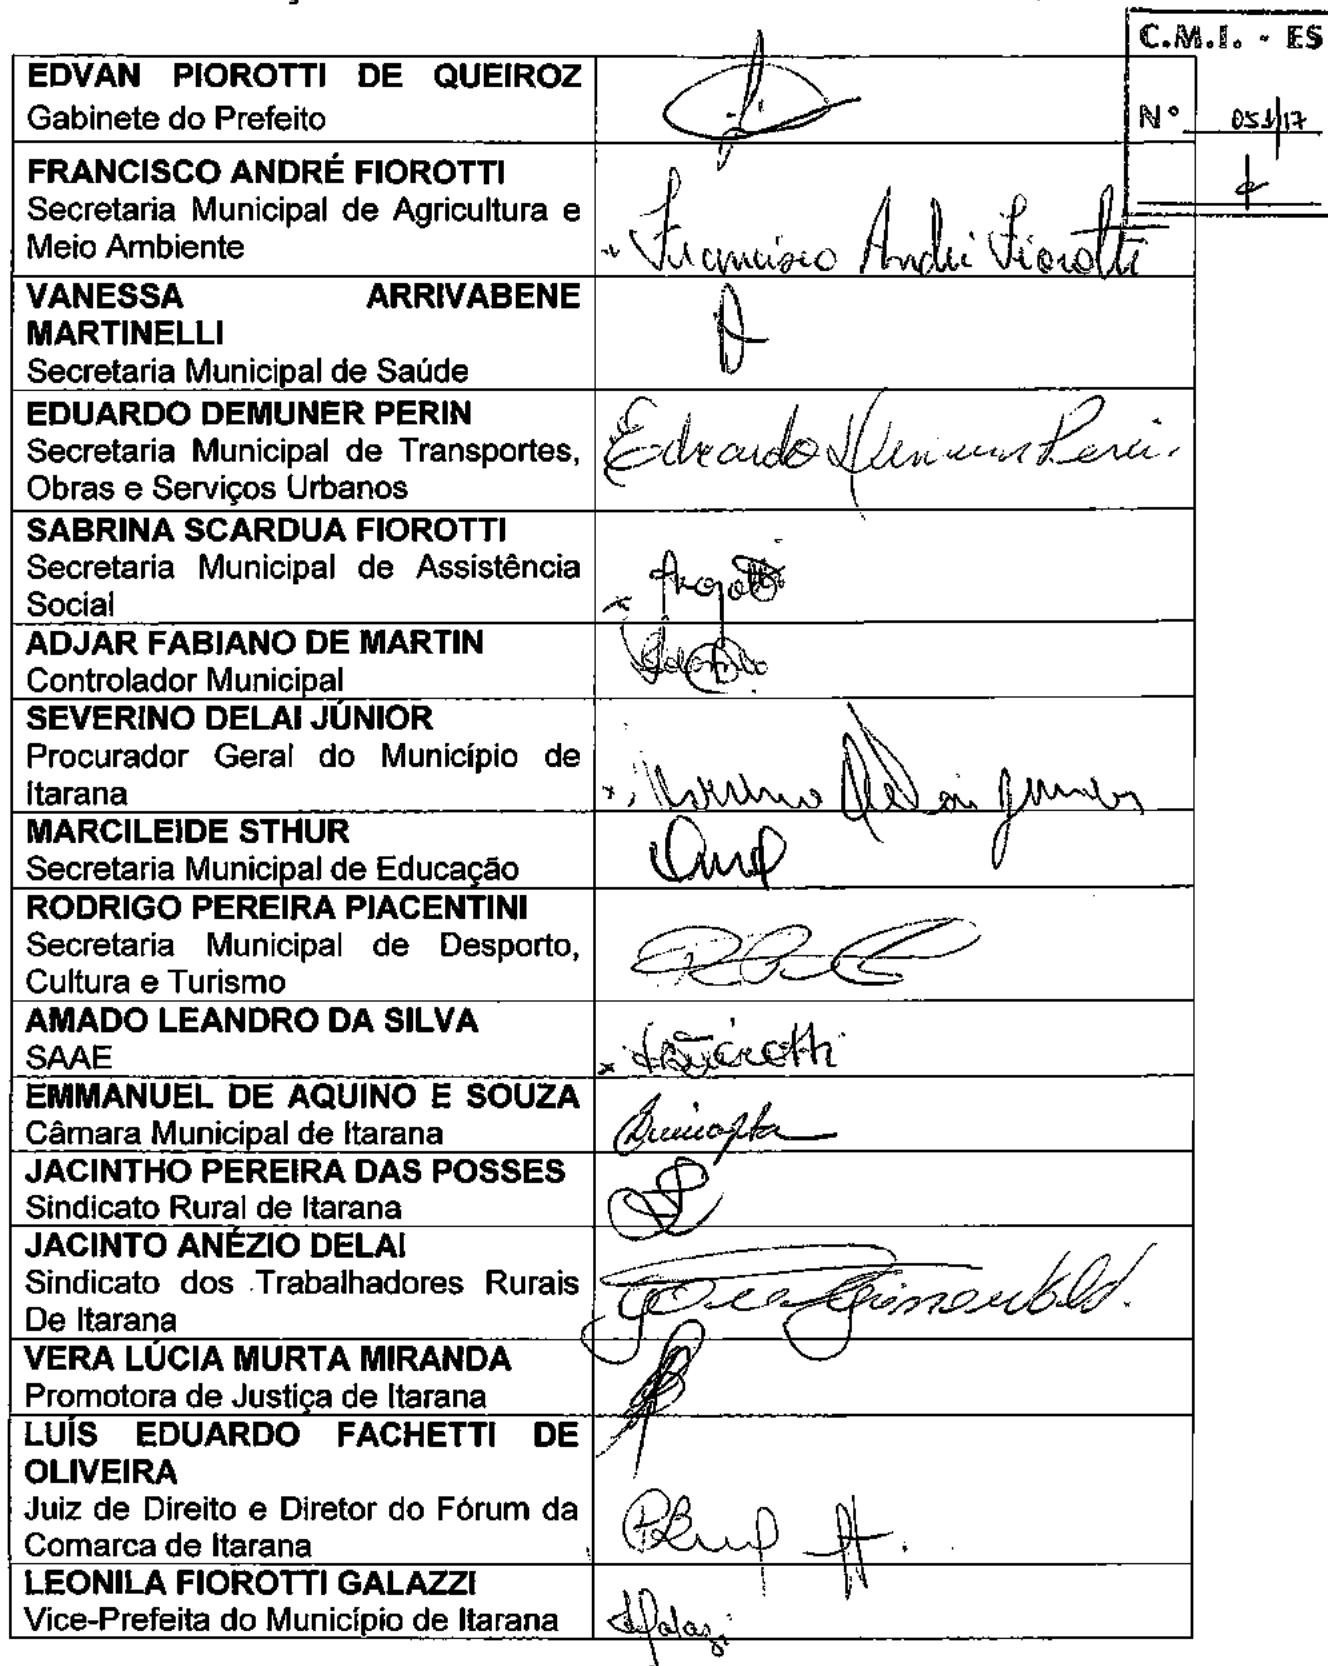 C.M.I. - ES
EDVAN PIOROTTI DE QUEIROZ
Gabinete do Prefeito
Nº 051/17
FRANCISCO ANDRÉ FIOROTTI
Secretaria Municipal de Agricultura e
Meio Ambiente
Francisco André Fiorotti
VANESSA ARRIVABENE
MARTINELLI
Secretaria Municipal de Saúde
EDUARDO DEMUNER PERIN
Secretaria Municipal de Transportes,
Obras e Serviços Urbanos
Eduardo Demuner Perin
SABRINA SCARDUA FIOROTTI
Secretaria Municipal de Assistência
Social
ADJAR FABIANO DE MARTIN
Controlador Municipal
SEVERINO DELAI JÚNIOR
Procurador Geral do Município de
Itarana
Severino Delai Junior
MARCILEIDE STHUR
Secretaria Municipal de Educação
RODRIGO PEREIRA PIACENTINI
Secretaria Municipal de Desporto,
Cultura e Turismo
AMADO LEANDRO DA SILVA
SAAE
EMMANUEL DE AQUINO E SOUZA
Câmara Municipal de Itarana
JACINTHO PEREIRA DAS POSSES
Sindicato Rural de Itarana
JACINTO ANÉZIO DELAI
Sindicato dos Trabalhadores Rurais
De Itarana
VERA LÚCIA MURTA MIRANDA
Promotora de Justiça de Itarana
LUÍS EDUARDO FACHETTI DE
OLIVEIRA
Juiz de Direito e Diretor do Fórum da
Comarca de Itarana
LEONILA FIOROTTI GALAZZI
Vice-Prefeita do Município de Itarana